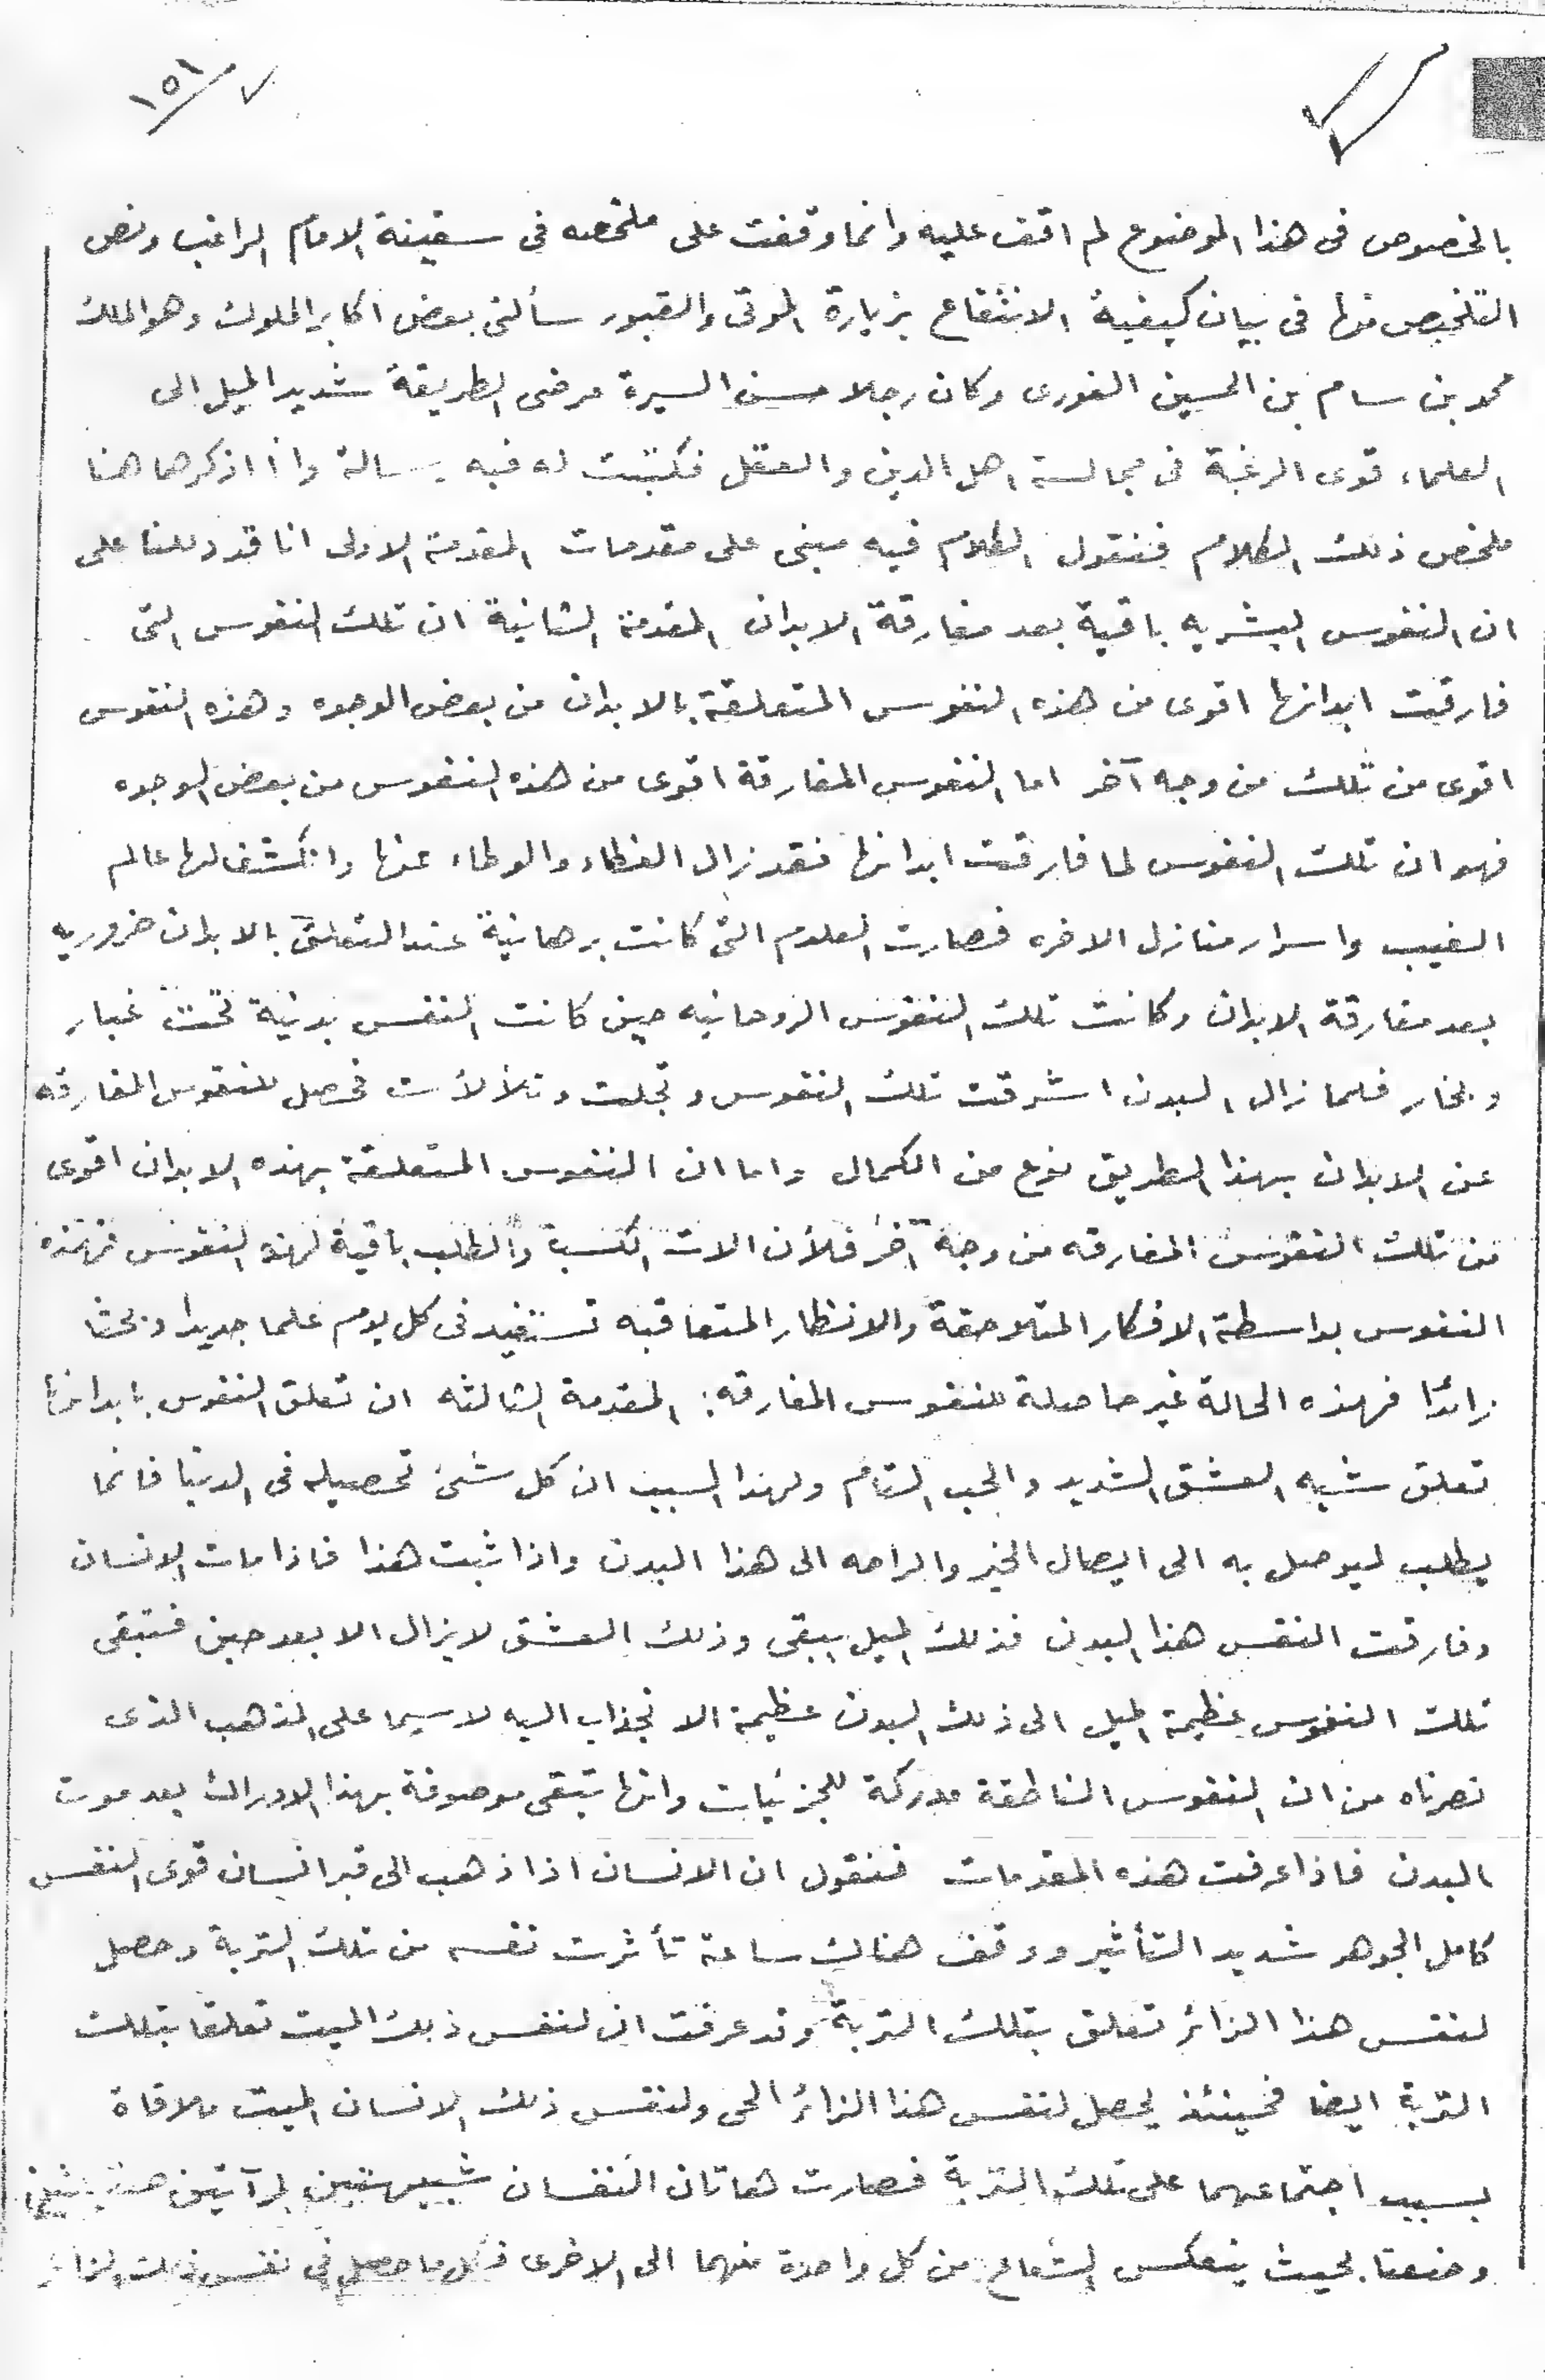 ١٥١
بالخصوص فى هذا الموضوع لم اقف عليه وانما وقفت على ملخصه فى سفينة الامام الراغب ونص
التلخيص منها فى بيان كيفية الانتفاع بزيارة الموتى والقبور سألنى بعض اكابر الملوك وهو الملك
محمد بن سام بن الحسين الغورى وكان رجلا حسن السيرة مرضى الطريقة شديد الميل الى
العلماء قوى الرغبة فى مجالسة اهل الدين والعقل فكتبت له فيه رسالة وانا اذكر هاهنا
ملخص ذلك الكلام فنقول الكلام فيه مبنى على مقدمات المقدمة الاولى انا قد دللنا على
ان النفوس البشريه باقية بعد مفارقة الابدان المقدمة الثانية ان تلك النفوس التى
فارقت ابدانها اقوى من هذه النفوس المتعلقة بالابدان من بعض الوجوه وهذه النفوس
اقوى من تلك من وجه آخر اما النفوس المفارقة اقوى من هذه النفوس من بعض الوجوه
فهو ان تلك النفوس لما فارقت ابدانها فقد زال الغطاء والوطاء عنها وانكشف لها عالم
الغيب واسرار منازل الاخره فصارت العلوم التى كانت برهانية عند التعلق بالابدان ضروريه
بعد مفارقة الابدان وكانت تلك النفوس الروحانيه حين كانت النفس بدنية تحت غبار
وبخار فلما زال البدن اشرقت تلك النفوس وتجلت وتلألأت فحصل للنفوس المفارقه
عن الابدان بهذا الطريق نوع من الكمال واما ان النفوس المتعلقة بهذه الابدان اقوى
من تلك النفوس المفارقه من وجه آخر فلأن الات الكسب والطلب باقية لهذه النفوس فهذه
النفوس بواسطة الافكار المتلاحقة والانظار المتعاقبه تستفيد فى كل يوم علما جديدا وبحثا
زائدا فهذه الحالة غير حاصلة للنفوس المفارقه: المقدمة الثالثه ان تعلق النفوس بابدانها
تعلق شبيه العشق الشديد والحب التام ولهذا السبب ان كل شئ تحصيله فى الدنيا فانما
يطلب ليوصل به الى ايصال الخير والراحه الى هذا البدن واذا ثبت هذا فاذا مات الانسان
وفارقت النفس هذا البدن فذلك الميل يبقى وذلك العشق لا يزال الا بعد حين فتبقى
تلك النفوس عظيمة الميل الى ذلك البدن عظيمة الانجذاب اليه لاسيما على المذهب الذى
نصرناه من ان النفوس الناطقة مدركة للجزئيات وانها تبقى موصوفة بهذا الادراك بعد موت
البدن فاذا عرفت هذه المقدمات فنقول ان الانسان اذا ذهب الى قبر انسان قوى النفس
كامل الجوهر شديد التأثير ووقف هناك ساعة تأثرت نفسه من تلك التربة وحصل
لنفس هذا الزائر تعلق بتلك التربة وقد عرفت ان لنفس ذلك الميت تعلقا بتلك
التربة ايضا فحينئذ يحصل لنفس هذا الزائر الحى ولنفس ذلك الانسان الميت ملاقاة
بسبب اجتماعهما على تلك التربة فصارت هاتان النفسان شبيهتين لمرآتين
وضعتا بحيث ينعكس الشعاع من كل واحدة منهما الى الاخرى فكل ما حصل فى نفس ذلك الزائر